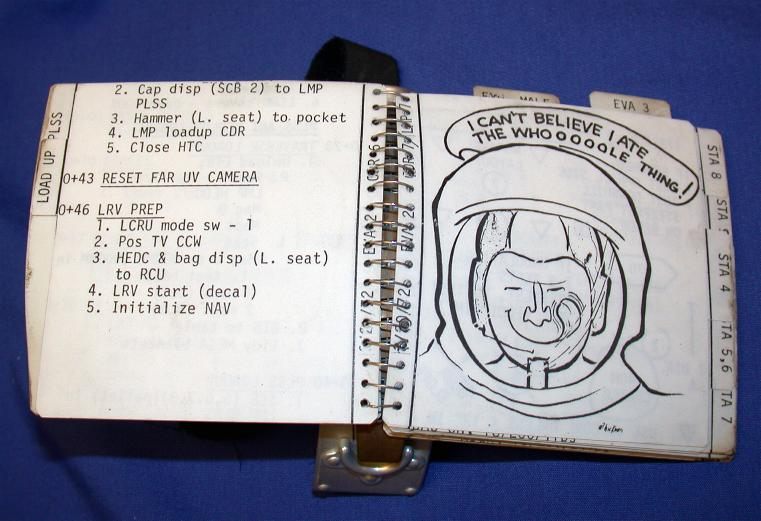 LOAD UP PLSS
2. Cap disp (SCB 2) to LMP
PLSS
3. Hammer (L. seat) to pocket
4. LMP loadup CDR
5. Close HTC
0+43 RESET FAR UV CAMERA
0+46 LRV PREP
1. LCRU mode sw - 1
2. Pos TV CCW
3. HEDC & bag disp (L. seat)
to RCU
4. LRV start (decal)
5. Initialize NAV
EVA 3
I CAN'T BELIEVE I ATE
THE WHOOOOOLE THING!
STA 8
STA
STA 4
TA 5,6
TA 7